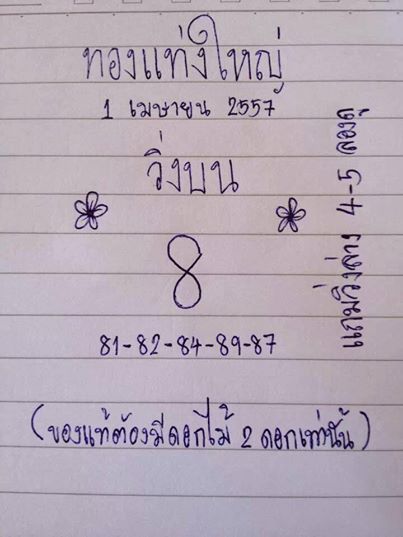 ทองแท่งใหญ่
1 เมษายน 2557
วิ่งบน
8
81-82-84-89-87
แถมวิ่งล่าง 4-5 ลองดู
(ของแท้ต้องมีดอกไม้ 2 ดอกเท่านั้น)